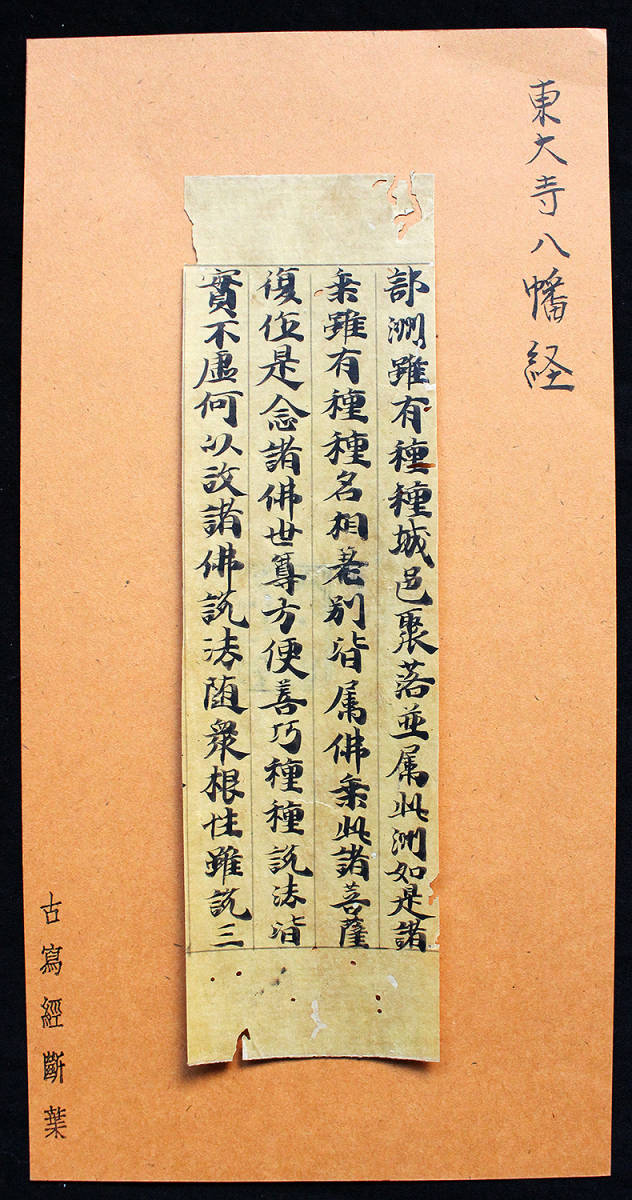 東大寺八幡経
部洲雖有種種城邑聚落並属此洲如是諸
乗雖有種種名相差別皆属佛乗此諸菩薩
復作是念諸佛世尊方便善巧種種説法皆
實不虛何以故諸佛説法随衆根性雖説三
古寫經斷葉